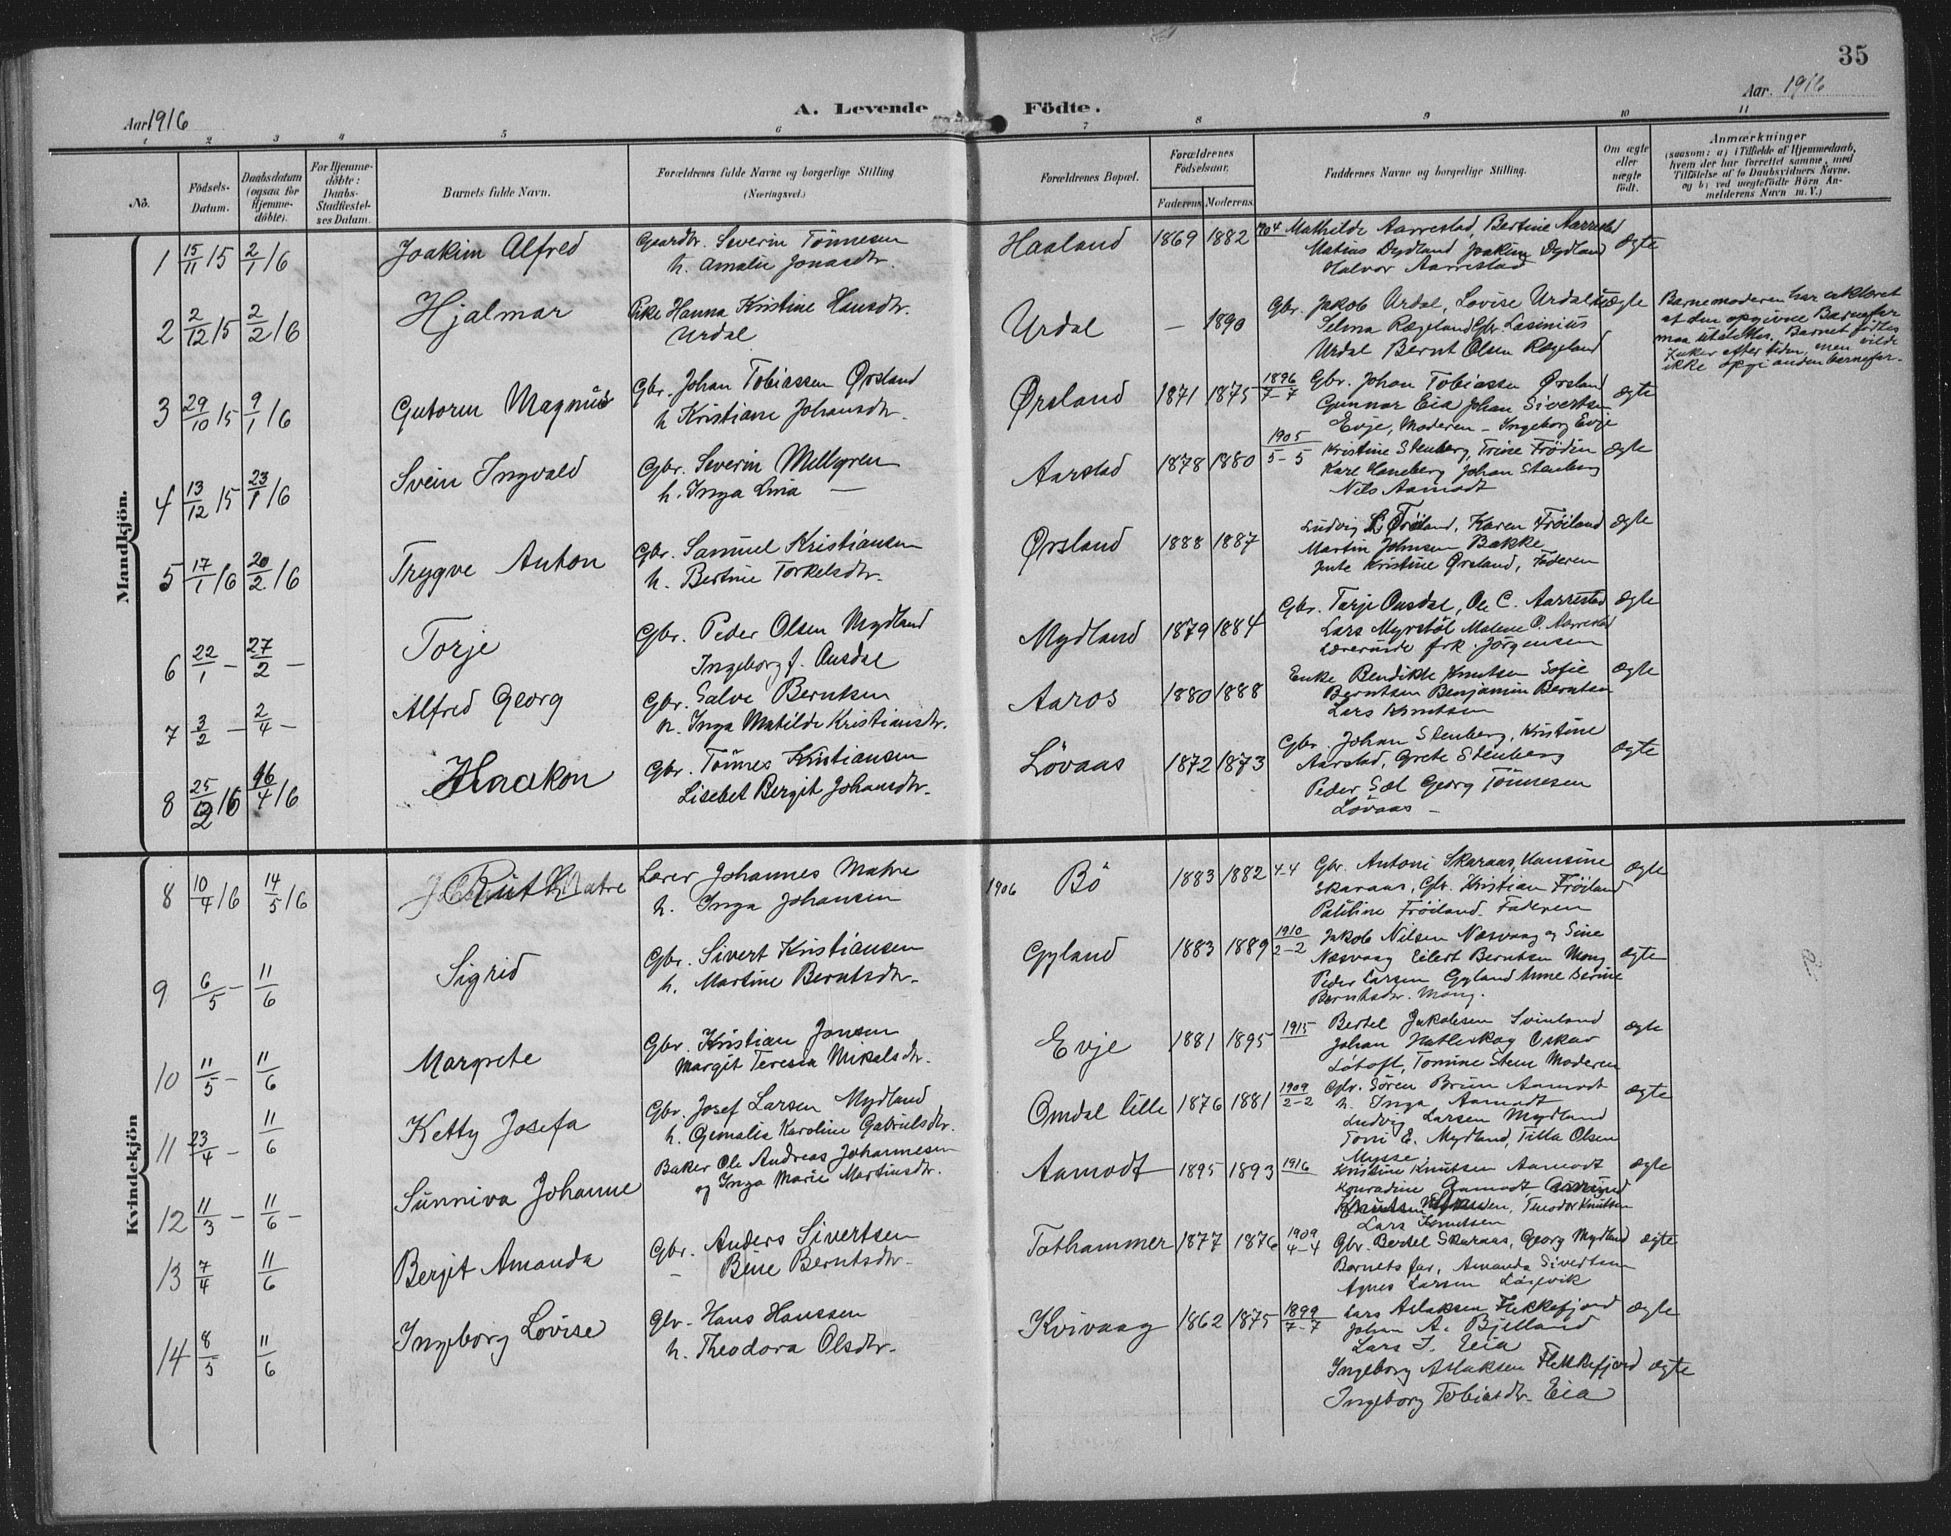 35
Aar 1916
A. Levende Födte.
Aar. 1916
1 2 3 4 5 6 7 8 9 10 11
No.
Födsels-Datum.
Daabsdatum (ogsaa for Hjemme-döbte).
For Hjemme-döbte: Daabs-Stadfæstel-ses Datum.
Barnets fulde Navn.
Forældrenes fulde Navne og borgerlige Stilling (Næringsvei.)
Forældrenes Bopæl.
Forældrenes Födselsaar.
Faderens Moderens
Faddernes Navne og borgerlige Stilling.
Om ægte eller uægte födt.
Anmærkninger
(saasom: a) i Tilfælde af Hjemmedaab,
hvem der har forrettet samme, med
Tilföielse af to Daabsvidners Navne.
og b) ved uægtefödte Börn An-
melderens Navn m. V.)
Mandkjön.
1 15/11 15 2/1 16 Joakim Alfred Gaardbr. Severin Tönnesen Haaland 1869 1882 1904 Mathilde Aarrestad, Bertine Aarrestad ægte
h. Amalie Jonasdtr. Matius Dydland Joakim Dydland
Halvor Aarrestad
2 2/12 15 2/2 16 Hjalmar Pike Hanna Kristine Hansdtr. Urdal — 1890 Gbr. Jakob Urdal, Lovise Urdal uægte Barnemoderen har erklæret
Urdal Selma Rægeland Gbr. Lasinius at den opgivne Barnefar
Urdal Bernt Olsen Rægeland maa utelukkes. Barnet födtes
uker efter tiden, men vilde
ikke opgi anden barnefar.
3 29/10 15 9/1 16 Gutorm Magnus Gbr. Johan Tobiassen Ørsland Ørsland 1871 1875 1896 7-7 Gbr. Johan Tobiassen Ørsland ægte
h Kristiane Johansdtr. Gunnar Eia Johan Sivertsen
Evje, Moderen - Ingeborg Evje
4 13/12 15 23/1 16 Svein Ingvald Gbr. Severin Mellgren Aarstad 1878 1880 1905 5-5 Kristine Stenberg, Trine Fröden ægte
h. Inga Lina — Karl Haneberg Johan Stenberg
Nils Aamodt
5 17/1 16 20/2 16 Trygve Anton Gbr. Samuel Kristiansen Ørsland 1888 1887 Ludvig Fröiland, Karen Fröiland ægte
h. Bertine Torkelsdtr. Martin Johnsen Bakke
Jente Kristine Ørsland, Faderen
6 22/1 — 27/2 — Torje Gbr. Peder Olsen Mydland Mydland 1879 1884 Gbr. Tarje Ousdal, Ole C. Aarrestad ægte
Ingeborg f. Ousdal Lars Myrstöl Malene O. Aarrestad
Lærerinde frk. Jörgensen
7 3/2 — 2/4 — Alfred Georg Gbr. Salve Berntsen Aaros 1880 1888 Enke Bendikte Knutsen Sofie ægte
h. Inga Matilde Kristiansdtr. Berntsen Benjamin Berntsen
Lars Knutsen
8 25/2 16 16/4 16 Haakon Gbr. Tönnes Kristiansen Lövaas 1872 1873 Gbr. Johan Stenberg, Kristine ægte
Lisebet Bergit Johansdtr. Aarstad, Grete Stenberg
Peder Sæl Georg Tönnesen
Lövaas —
Kvindekjön
8 10/4 16 14/5 16 Ruth Matre Lærer Johannes Matre 1906 Bö 1883 1882 4-4 Gbr. Antoni Skaraas, Hansine ægte
h. Inga Johansen Skaraas, Gbr. Kristian Fröiland
Pauline Fröiland. Faderen
9 6/5 — 11/6 Sigrid Gbr. Sivert Kristiansen Gyland 1883 1889 1910 2-2 Jakob Nilsen Næsvaag og Sine ægte
h. Martine Berntsdtr. Næsvaag Eilert Berntsen Mong
Peder Larsen Gyland Anne Serine
Berntsdtr. Mong.
10 11/5 — 11/6 Margrete Gbr. Kristian Jonsen Evje 1881 1895 1915 Bertel Jakobsen Svinland ægte
Margit Teresia Mikalsdtr. Johan Hatleskog Oskar
Lötoft, Tomine Stene Moderen
11 23/4 — 11/6 Ketty Josefa Gbr. Josef Larsen Mydland Omdal lille 1876 1881 1909 2-2 Gbr. Sören Bruun Aamodt ægte
h. Gemalia Karoline Gabrielsdtr. h. Inga Aamodt
Ludvig Larsen Mydland
Toni E. Mydland, Tilla Olsen
Mysse.
12 11/3 — 11/6 — Sunniva Johanne Baker Ole Andreas Johannesen Aamodt 1895 1893 1916 Kristine Knutsen Aamodt ægte
og Inga Marie Martinsdtr. Konradine Aamodt
Theodor Knutsen
Lars Knutsen
13 7/4 11/6 Bergit Amanda Gbr. Anders Sivertsen Tothammer 1877 1876 1909 4-4 Gbr. Bertel Skaraas, Georg Mydland ægte
— Bine Berntsdtr. Barnets far, Amanda Sivertsen
Agnes Larsen Lögevik
14 8/5 11/6 Ingeborg Lovise Gbr. Hans Hanssen Kvivaag 1862 1875 1899 7-7 Lars Aslaksen Flekkefjord ægte
h. Theodora Olsdtr. Johan A. Bjelland
Lars J. Eia
Ingeborg Aslaksen Flekkefjord ægte
Ingeborg Tobiasdtr. Eia